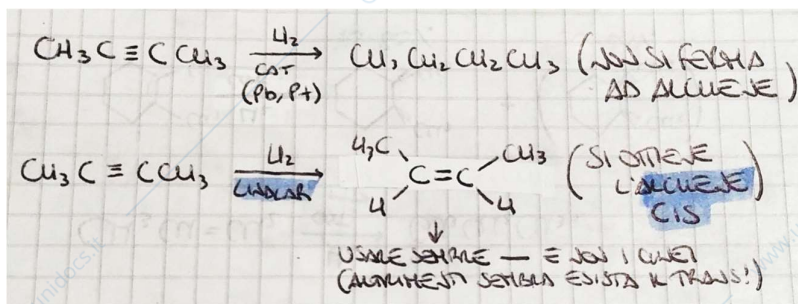 CH3C ≡ CCH3 H2 CAT (Pb, Pt) → CH3CH2CH2CH3 (NON SI FERMA
AD ALCHENE)
CH3C ≡ CCH3 H2 LINDLAR → H3C CH3 C=C H H (SI OTTIENE
L'ALCHENE
CIS)
↓
USARE SEMPRE — E NON I CUNEI
(ALTRIMENTI SEMBRA ESISTA IL TRANS!)
unidocs.it
www.